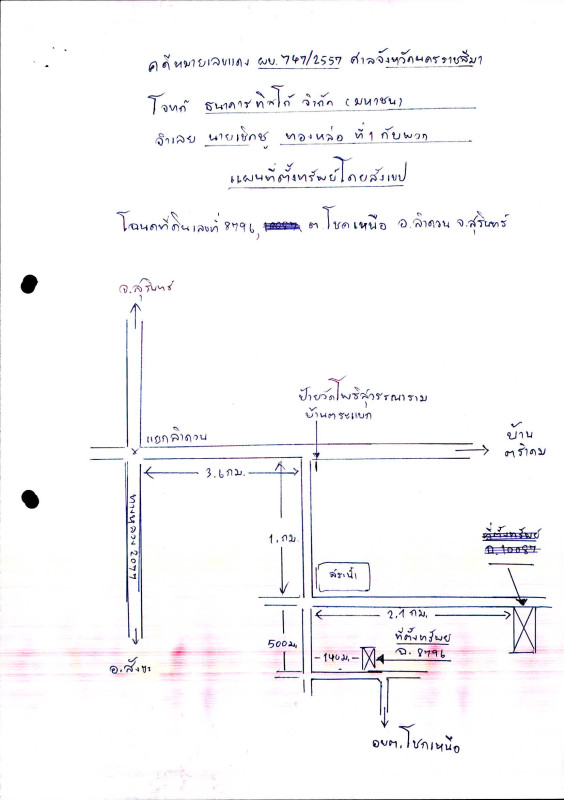 คดีหมายเลขแดง ผบ. 747/2557 ศาลจังหวัดนครราชสีมา
โจทก์ ธนาคารทิสโก้ จำกัด (มหาชน)
จำเลย นายเชิกชู ทองหล่อ ที่ 1 กับพวก
แผนที่ตั้งทรัพย์โดยสังเขป
โฉนดที่ดินเลขที่ 8796, ต.โชคเหนือ อ.ลำดวน จ.สุรินทร์
จ.สุรินทร์
ป้ายวัดโพธิสุวรรณาราม
บ้านตระแบก
แยกลำดวน
บ้าน
ตรำดม
3.6 กม.
ทางหลวง 2077
1. กม.
ที่ตั้งทรัพย์
ฉ. 10087
สระน้ำ
2.1 กม.
500ม.
140ม.
ที่ตั้งทรัพย์
ฉ. 8796
อ.สังขะ
อบต.โชคเหนือ